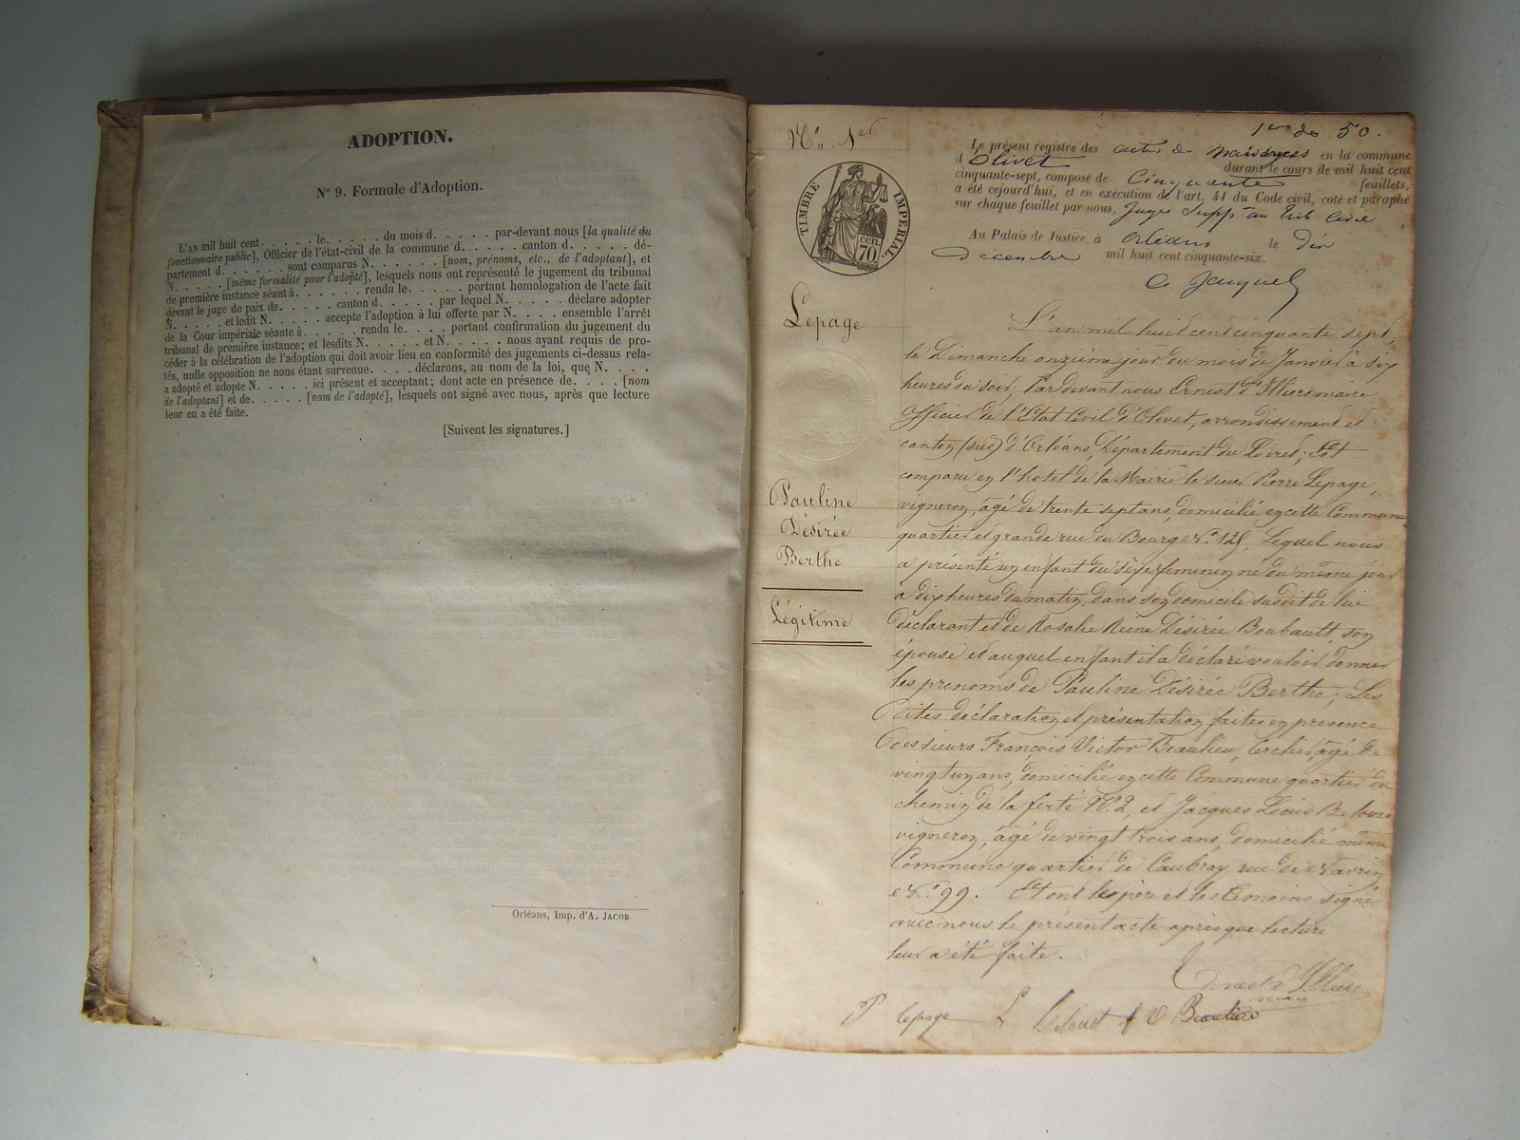 ADOPTION.
No 9. Formule d'Adoption.
L'AN mil huit cent. . . . . le. . . . . du mois d. . . . . . par-devant nous [la qualité du
fonctionnaire public], Officier de l'état-civil de la commune d. . . . . . canton d. . . . . dé-
partement d. . . . . . . sont comparus N. . . . . . . [nom, prénoms, etc., de l'adoptant], et
N. . . . . . [même formalité pour l'adopté], lesquels nous ont représenté le jugement du tribunal
de première instance séant à. . . . . . . rendu le. . . . . . portant homologation de l'acte fait
devant le juge de paix de. . . . . . canton d. . . . . . par lequel N. . . . . . déclare adopter
N. . . . . et ledit N. . . . . . accepte l'adoption à lui offerte par N. . . . . ensemble l'arrêt
de la Cour impériale séante à. . . . . . rendu le. . . . portant confirmation du jugement du
tribunal de première instance; et lesdits N. . . . . et N. . . . . . nous ayant requis de pro-
céder à la célébration de l'adoption qui doit avoir lieu en conformité des jugements ci-dessus rela-
tés, nulle opposition ne nous étant survenue. . . . déclarons, au nom de la loi, que N. . . .
a adopté et adopte N. . . . . . ici présent et acceptant; dont acte en présence de. . . . [nom
de l'adoptant] et de. . . . . . [nom de l'adopté], lesquels ont signé avec nous, après que lecture
leur en a été faite.
[Suivent les signatures.]
Orléans, Imp. d'A. JACOB
1er de 50.
No 1er
TIMBRE IMPÉRIAL
CEN. 70
Le présent registre des actes de naissances en la commune
d'Olivet durant le cours de mil huit cent
cinquante-sept, composé de Cinquante feuillets,
a été cejourd'hui, et en exécution de l'art. 41 du Code civil, coté et paraphé
sur chaque feuillet par nous, Juge Supp. au Trib. Civil
Au Palais de Justice, à Orléans le Dix
Décembre mil huit cent cinquante-six.
Lepage
Pauline
Désirée
Berthe
Légitime
L'an mil huit cent cinquante sept,
le Dimanche onzième jour du mois de Janvier à six
heures du soir, Par devant nous Ernest d'Illiers maire
Officier de l'Etat Civil d'Olivet, arrondissement et
canton (sud) d'Orléans, Département du Loiret; Est
comparu en l'hotel de la Mairie le sieur Pierre Lepage,
vigneron, âgé de trente sept ans, domicilié en cette Commune
quartier et grande rue du Bourg No 128, Lequel nous
a présenté un enfant du sexe féminin né du même jour
à dix heures du matin, dans son domicile susdit de lui
déclarant et de Rosalie Reine Désirée Boubault, son
épouse et auquel enfant il a déclaré vouloir donner
les prénoms de Pauline Désirée Berthe; Les
dites déclaration et présentation faites en présence
des sieurs François Victor Beaulieu, âgé de
vingt un ans, domicilié en cette Commune quartier du
chemin de la ferté No 2, et Jacques Louis
vigneron, âgé de vingt trois ans, domicilié même
Commune quartier de Caubray rue de
No 99. Et ont les père et les témoins signé
avec nous le présent acte après que lecture
leur a été faite.
Ernest d'Illiers
P lepage
V Beaulieu